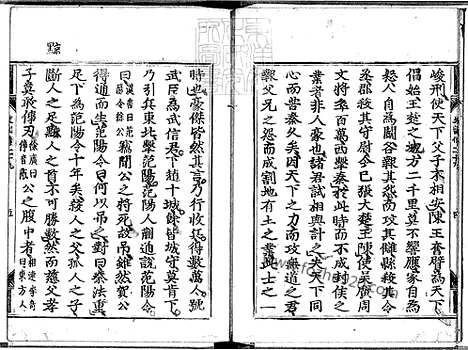 峻刑使天下父子不相安陳王奮臂爲天下
倡始王楚之地方二千里莫不響應家自爲
怒人自爲鬪各報其怨而攻其讎縣殺其令
丞郡殺其守尉今已張大楚王陳使吳廣周
文將卒百萬西擊秦於此時而不成封侯之
業者非人豪也諸君試相與計之夫天下同
心而苦秦久矣因天下之力而攻無道之君
報父兄之怨而成割地有土之業此士之一
時也豪傑皆然其言乃行收兵得數萬人號
武臣爲武信君下趙十城餘皆城守莫肯下
乃引兵東北擊范陽范陽人蒯通說范陽令
曰漢書曰范陽令徐公竊聞公之將死故弔雖然賀公
得通而生范陽令曰何以弔之對曰秦法重
足下爲范陽令十年矣殺人之父孤人之子
斷人之足黥人之首不可勝數然而慈父孝
子莫敢傳刃公之腹中者
黥